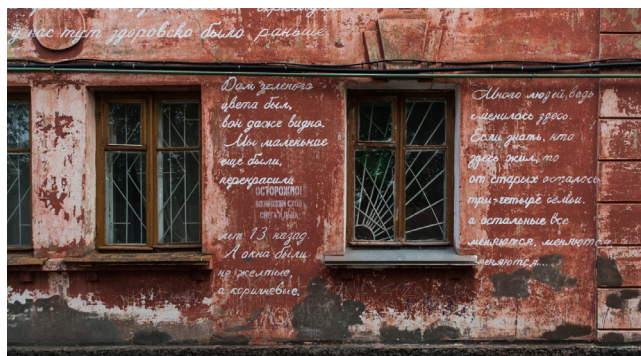 у нас тут здоровско было раньше
Дом зеленого
цвета был,
вон даже видно.
Мы маленькие
ещё были,
перекрасили
ОСТОРОЖНО!
ВОЗМОЖЕН СХОД
СНЕГА И ЛЬДА
лет 13 назад
А окна были
не желтые,
а коричневые.
Много людей, ведь
сменилось здесь.
Если знать, кто
здесь жил, то
от старых осталось
три-четыре семьи.
а остальные все
меняются, меняются
меняются...